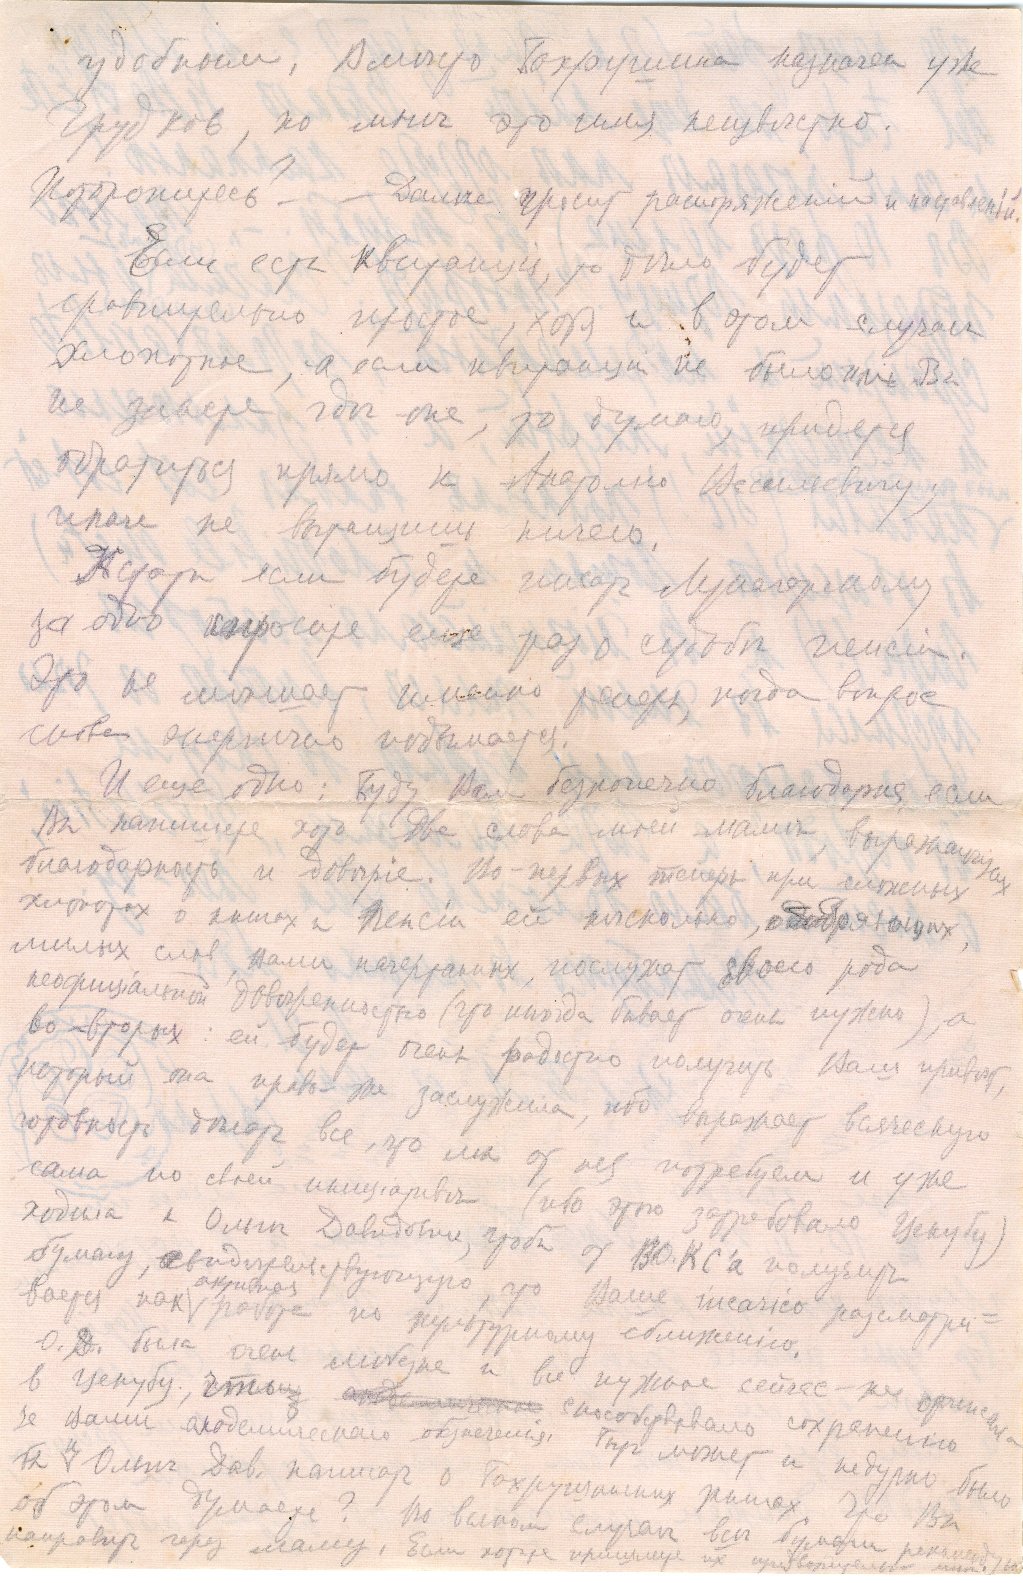 удобным, Вместо Бахрушина назначен уже
Грудков, но мнѣ это имя неизвѣстно.
Поторопитесь? — Дальше просит распоряженій и наставленій.
Если есть квитанція, то дѣло будет
сравнительно простое, хотя и в этом случаѣ
хлопотное, а если квитанціи не было или Вы
не знаете гдѣ она, то, думаю, придется
обратиться прямо к Анатолію Васильевичу,
иначе не вытащишь ничего.
Кстати если будете писать Луначарскому
за одно спросите еще раз о судьбѣ пенсіи.
Это не мѣшает именно теперь, когда вопрос
снова энергично подымается.
И еще одно: буду Вам безконечно благодарна, если
Вы напишете, хоть две слова моей мамѣ, выражающих
благодарность и довѣріе. Во-первых теперь при сложных
хлопотах о книгах и пенсіи ей нѣсколько, ободряющих,
милых слов, Вами начертанных, послужат своего рода
неофиціальной довѣренностью (что иногда бывает очень нужно), а
во-вторых: ей будет очень радостно получить Ваш привѣт,
который она право-же заслужила, ибо выражает всяческую
готовность дѣлать все, что мы от нея потребуем и уже
сама по своей иниціативѣ (ибо этого затребовало Цекубу)
ходила к Ольгѣ Давыдовнѣ, чтобы от ВО.КС'а получить
бумагу, свидѣтельствующую, что Ваше писаніе разсматри=
вается как активная работа по культурному сближенію.
О. Д. была очень любезна и все нужное сейчас-же написала
в Цекубу, что способствовало сохраненію
за Вами академическаго обезпеченія. Быть может и недурно было
бы и Ольгѣ Дав. написать о Бахрушинских книгах. Что Вы
об этом думаете? Во всяком случаѣ всѣ бумаги рекомендую
направить через маму. Если хотите пришлите их предварительно мнѣ.